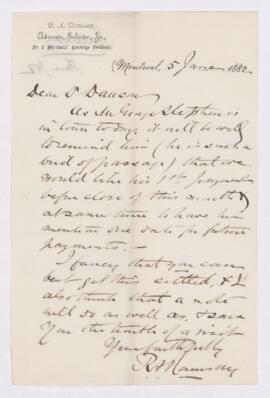 R. A. RAMSAY,
Advocate, Solicitor, &c.,
Montreal, 5 June 1882
Dear Dr Dawson
As Mr George Stephen is
in town to day, it will be well
to remind him (he is such a
bird of passage) that we
would like his 1st payment
before close of this month &
at same time to have him
mention one date for future
payments. —
I fancy that you can
best get this settled, & I
also think that a note
will do as well as, & save
you the trouble of a visit
Yours faithfully
R A Ramsay